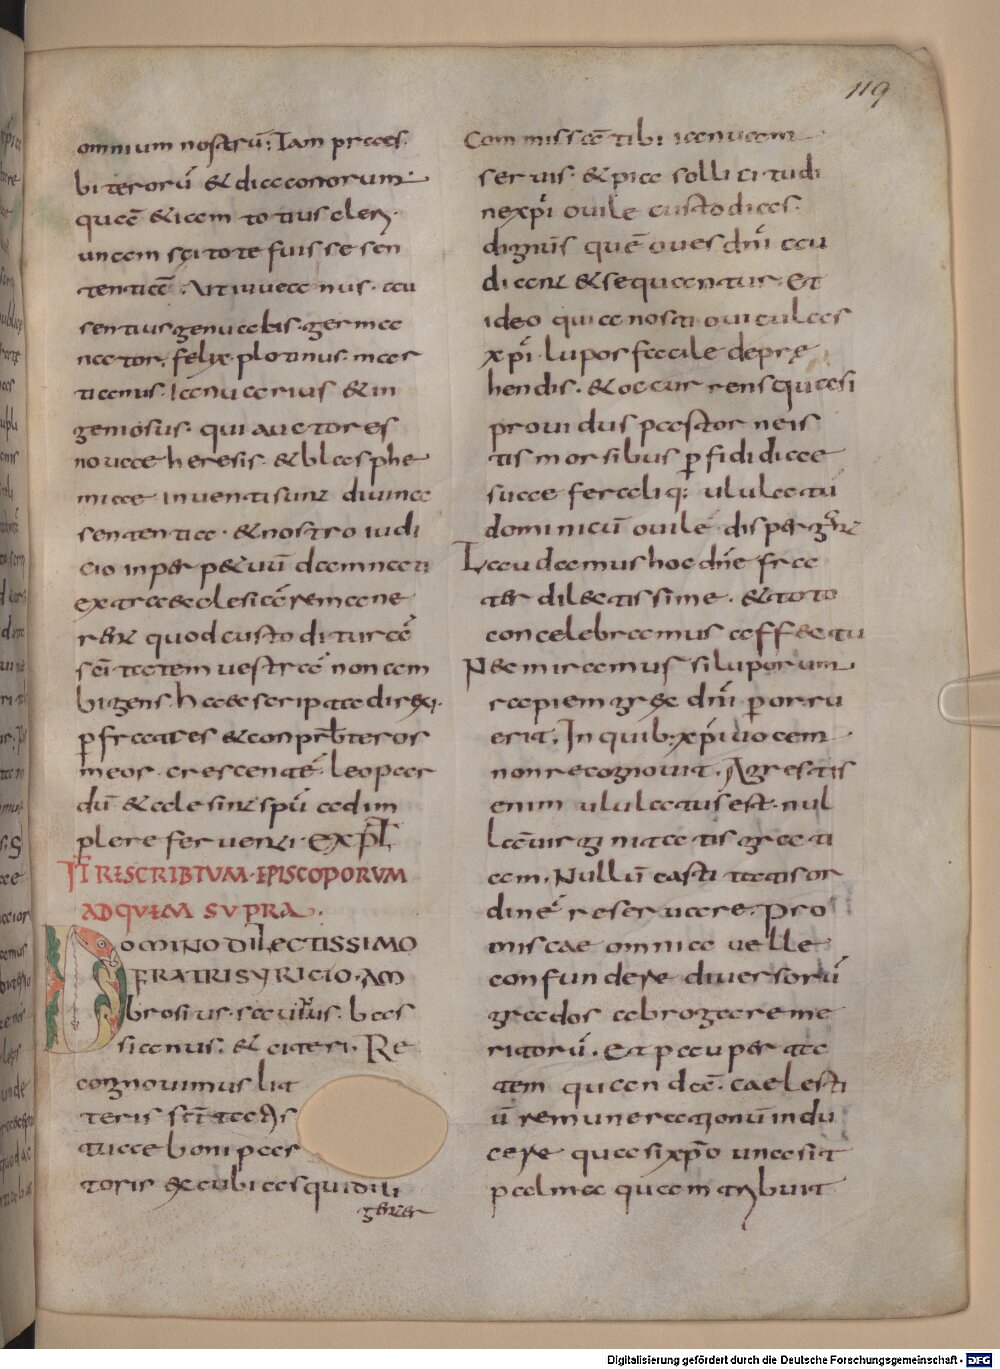 119
omnium nostrũ; Iam præs
biterorũ & diaconorum
quã & iam totius cleri
unam scitote fuisse sen
tentiã. Ut iuuenianus. au
sentius genualis. germa
nator, felix. plotinus. mar
tianus. Ianuarius & in
geniosus. qui auctores
nouae heresis. & blasphe
miae inuenti sunt diuina
sententia. & nostro iudi
cio in perpetuũ damnati
extra ecclesiã remane
rent quod custodituram
scĩtatem uestrã non am
bigens. haec scripta direxi.
p fratres & conprb̃teros
meos. crescentẽ. leopar
dũ & alexsint spũ ad im
plere feruenti. expl̃
II RESCRIBTUM. EPISCOPORUM
AD QUEM SUPRA.
DOMINO DILECTISSIMO
FRATRI SYRICIO. AM
brosius. sauinus. bas
sianus. & citeri. Re
cognouimus lit
teris scĩtatis
tuae boni pas
toris excubias qui dili
genter
Commissã tibi ianuam
seruis. & pia sollicitudi
ne xpĩ ouile custodias.
dignus quẽ oues dnĩ au
diant & sequantur. Et
ideo quia nosti ouiculas
xpĩ. lupos facile depre
hendis. & occurrens quasi
prouidus pastor ne is
tis morsibus pfidiae
suae feraliq; ululatu
dominicũ ouile dispergant
Laudamus hoc dñe fra
ter dilectissime. & toto
concelebramus affectu
Nec miramur si luporum
rapiem grex dnĩ porru
erit. In quib; xpĩ uocem
non recognouit. Agrestis
enim ululatus est. nul
lã uirginitatis grati
am. Nullũ castitatis or
dinẽ reseruare. Pro
miscae omnia uelle
confundere diuersorũ
gradus abrogare me
ritorũ. Et paupertatẽ
tem quandã. caelesti
ũ remunerationũ indu
cere quasi xpõ una sit
palma quam tribuat
Digitalisierung gefördert durch die Deutsche Forschungsgemeinschaft - DFG